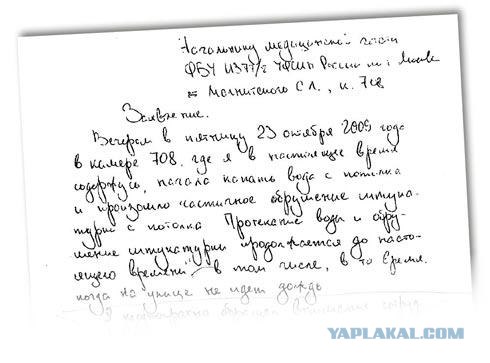 Начальнику медицинской части
ФБУ ИЗ77/2 УФСИН России по г. Москве
Магнитского С Л., к. 708
Заявление.
Вечером в пятницу 23 октября 2009 года
в камере 708, где я в настоящее время
содержусь, начала капать вода с потолка
и произошло частичное обрушение штука-
турки с потолка Протекание воды и обру-
шение штукатурки продолжается до насто-
ящего времени в том числе, в то время.
когда на улице не идет дождь
Я неоднократно обращал внимание сотруд-
YAPLAKAL.COM